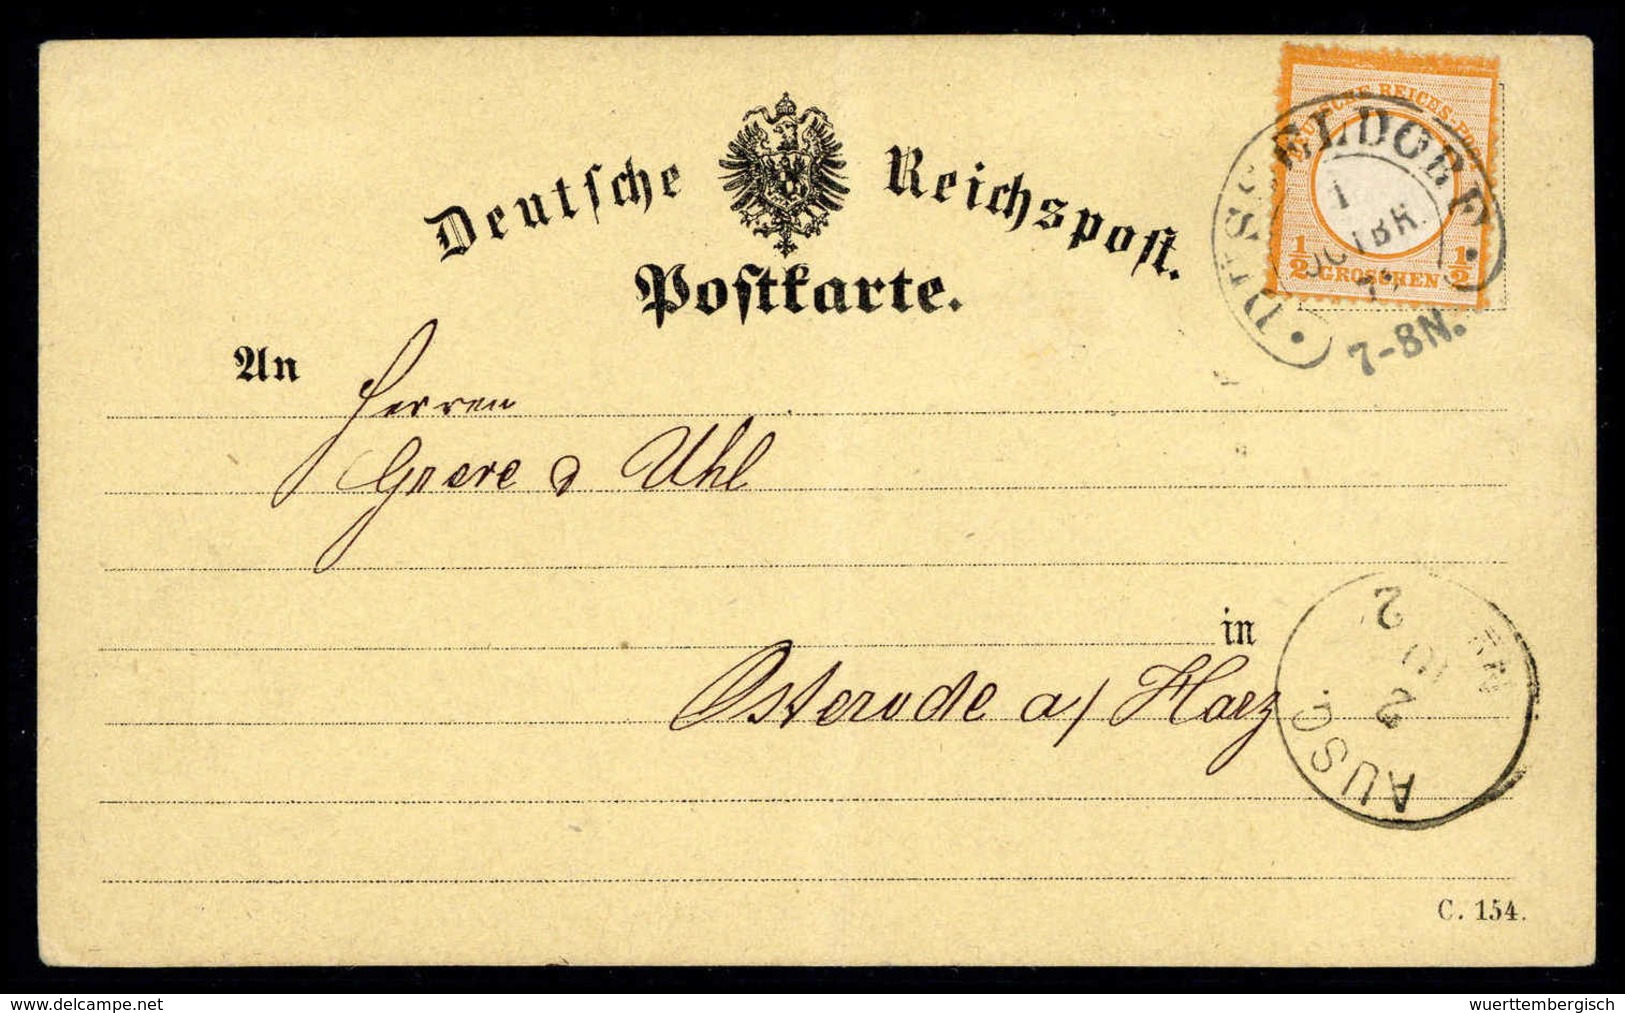 Deutsche Reichspost.
Postkarte.
DEUTSCHE REICHS-POST
1/2 GROSCHEN 1/2
DÜSSELDORF
1
OCTBR.
7-8N.
An
Herren
& Uhl
in
Osterode a/ Harz
AUSG
2
10
2
C. 154.
www.delcampe.net
wuerttembergisch